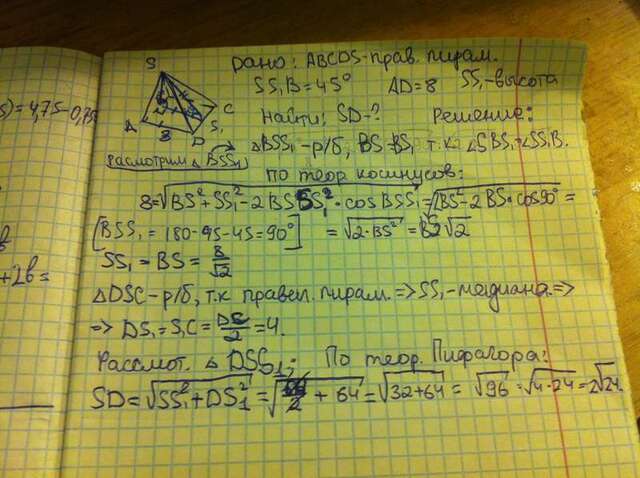 +2b =
s) = 4,75 -
Дано: ABCDS - прав. пирам.
SS₁B = 45° AD = 8 SS₁ - высота
Найти: SD - ? Решение:
рассмотрим △BSS₁
△BSS₁ - р/б, т.к. ∠SBS₁ = ∠SS₁B.
По теор косинусов:
8 = √BS² + SS₁² - 2BS · SS₁ · cos BSS₁ = √BS² - 2BS · cos 90° =
[BSS₁ = 180 - 45 - 45 = 90°] = √2·BS² = √2
SS₁ = BS = 8/√2
△DSC - р/б, т.к правел. пирам => SS₁ - медиана. =>
=> DS₁ = S₁C = DC/2 = 4.
Рассмот. △ DSS₁: По теор. Пифагора:
SD = √SS₁² + DS₁² = √ /2 + 64 = √32+64 = √96 = √4·24 = 2√24
S
A
B
D
S₁
C